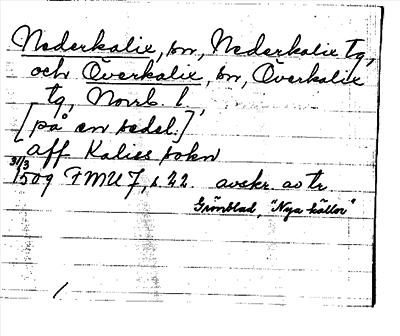 Nederkalix, sn, Nederkalix tg,
och Överkalix, sn, Överkalix
tg, Norrb. l.,
[på en sedel.]
aff Kalies sokn
31/3
1509 FMU 7, s 22. avskr. av tr
Grönblad, "Nya källor"